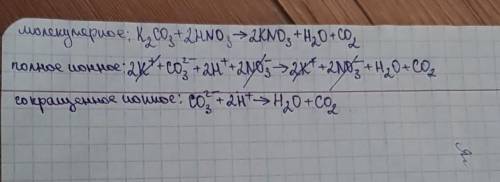 молекулярное: K₂CO₃+2HNO₃→2KNO₃+H₂O+CO₂
полное ионное: 2K⁺+CO₃²⁻+2H⁺+2NO₃⁻→2K⁺+2NO₃⁻+H₂O+CO₂
сокращенное ионное: CO₃²⁻+2H⁺→H₂O+CO₂